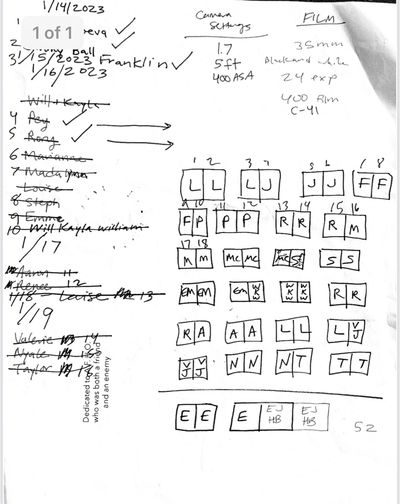 1/14/2023
1 of 1
eva
2 ball
3 1/15/2023 Franklin
1/16/2023
Will + Kayla
4 Peg
5 Rory
6 Marianne
7 Madalynn
Louise
8 Steph
9 Emme
10 Will Kayla William
1/17
Aaron 11
Renee 12
1/18 - Louise 13
1/19
Valerie 14
Nyale 15
Taylor 16
Dedicated to
who was both a friend
and an enemy
Camera
Settings
1.7
5ft
400ASA
FILM
35mm
Black and white
24 exp
400 film
C-41
1 2 3 4 5 6 7 8
L L L J J J F F
9 10 11 12 13 14 15 16
F P P P R R R M
17 18
M M MC MC S S
EM EM EM R R
R A A A L L L V J
V J V J N N N T T T
E E E EJ HB EJ HB
52